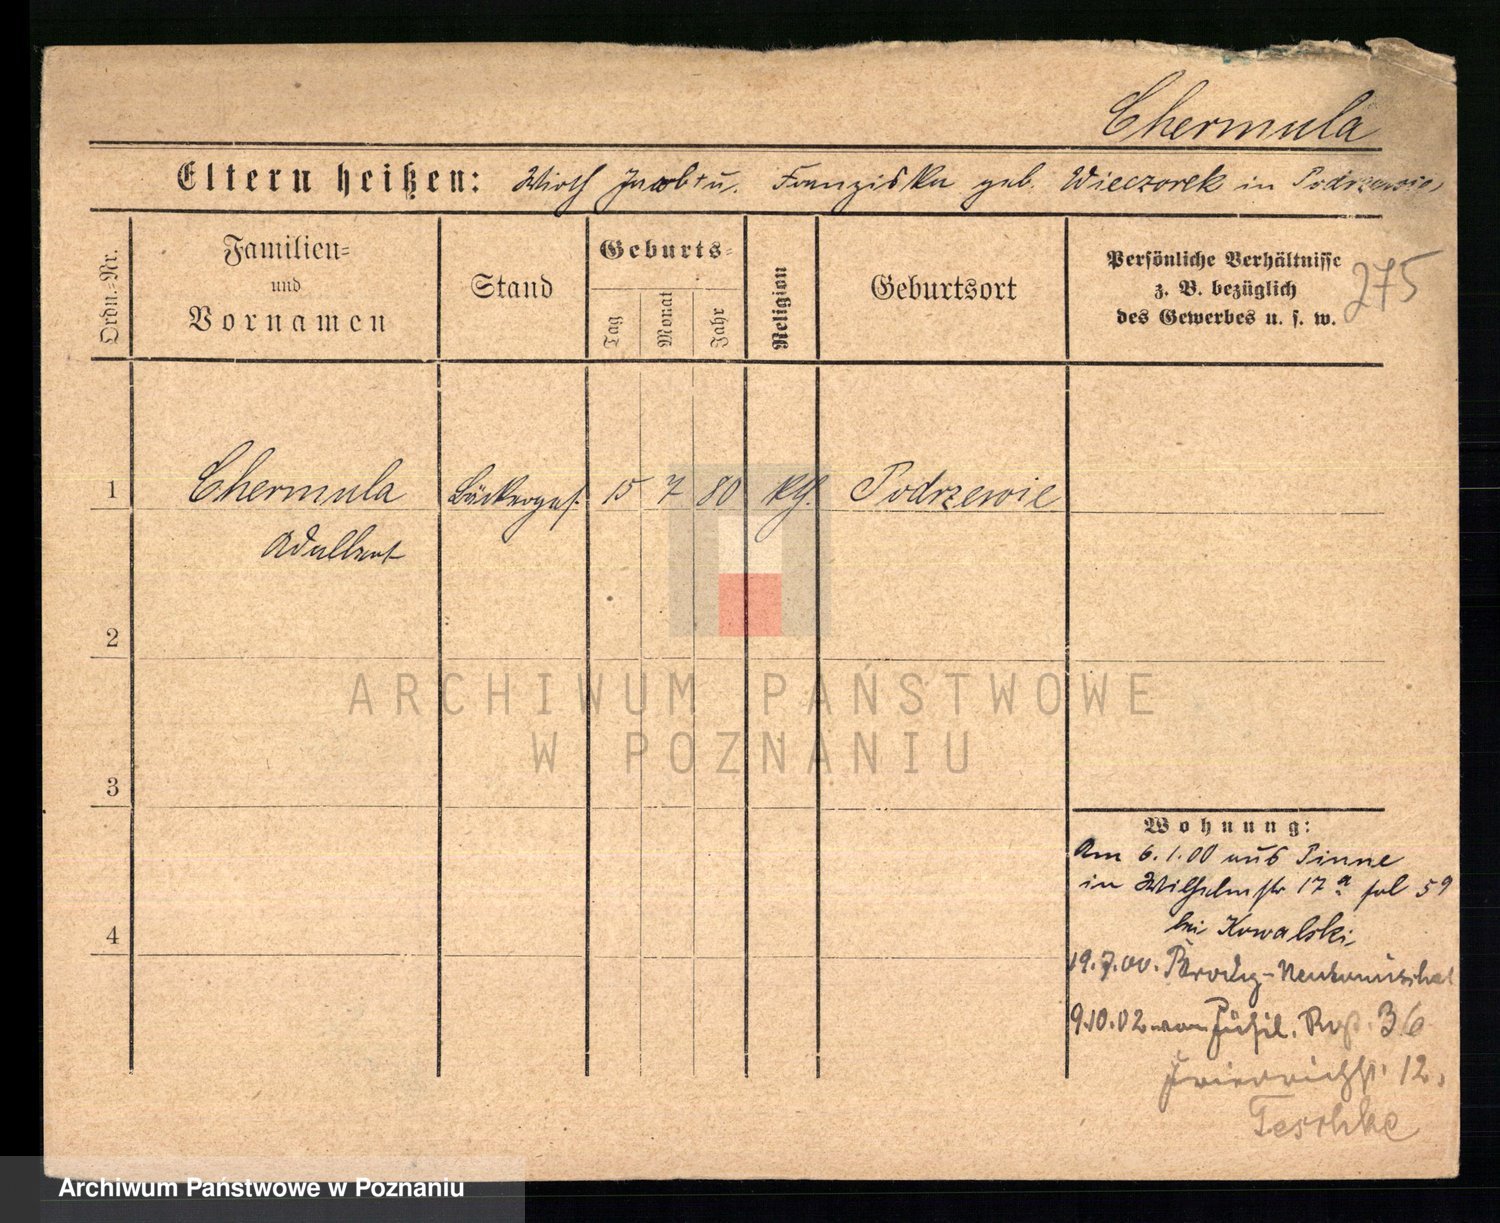 Chermula
Eltern heißen: Wirth Jacob + u. Franziska geb. Wieczorek in Podrzewie
Ordn.-Nr.
Familien-
und
Vornamen
Stand
Geburts-
Tag
Monat
Jahr
Religion
Geburtsort
Persönliche Verhältnisse
z. B. bezüglich
des Gewerbes u. s. w.
275
1 Chermula Bäckerges. 15 7 80 kth. Podrzewie
Adalbert
2
3
4
Wohnung:
Am 6.1.00 aus Pinne
in Wilhelmstr 17a fol 59
bei Kowalski
19.7.00. Neutomischel
9.10.02 von Füsil. Rgt. 36
Friedrichstr. 12.
Teschke
ARCHIWUM PAŃSTWOWE
W POZNANIU
Archiwum Państwowe w Poznaniu